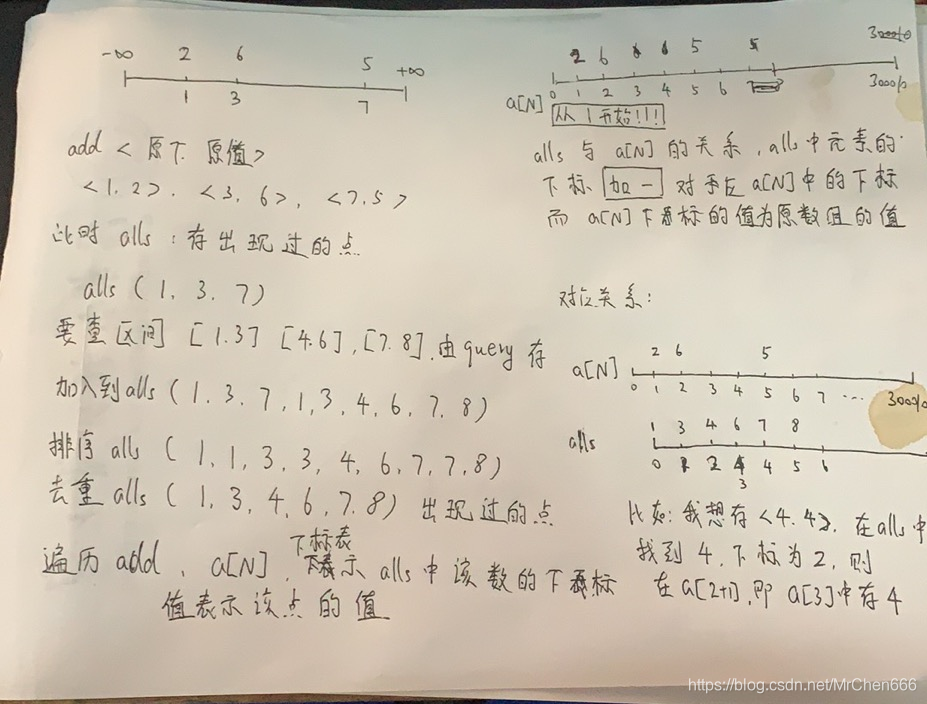 -∞ 2 6 5 +∞
1 3 7
add < 原下. 原值>
<1. 2>. <3. 6>, <7.5>
此时 alls : 存出现过的点
alls ( 1. 3. 7)
要查区间 [1.3] [4.6], [7.8]. 由query存
加入到alls ( 1, 3, 7, 1, 3, 4, 6, 7, 8)
排序 alls ( 1, 1, 3, 3, 4, 6, 7, 7, 8)
去重 alls ( 1, 3, 4, 6, 7. 8) 出现过的点
遍历 add , a[N] , 下标表示 alls 中该数的下标
值表示该点的值
2 6 5
a[N] 0 1 2 3 4 5 6 7
从1开始!!!
alls 与 a[N] 的关系, alls中元素的
下标 加一 对于在 a[N] 中的下标
而 a[N] 下标的值为原数组的值
对应关系:
2 6 5
a[N] 0 1 2 3 4 5 6 7 ...
1 3 4 6 7 8
alls
0 1 2 3 4 5 6
比如: 我想存<4. 4>. 在alls中
找到4. 下标为2, 则
在a[2+1], 即 a[3]中存4
https://blog.csdn.net/MrChen666